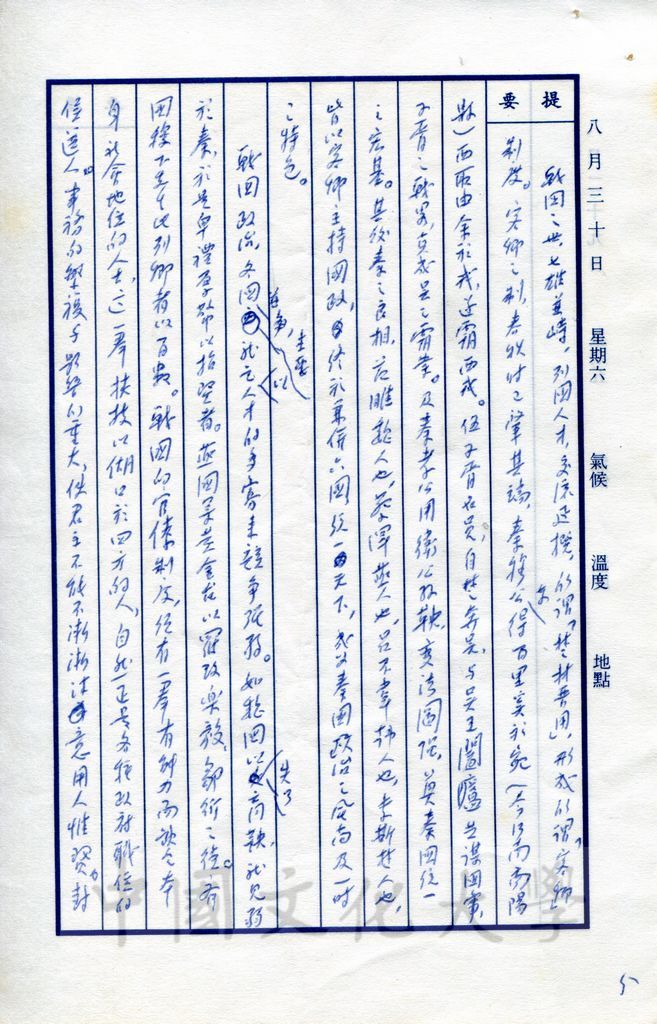 八月三十日 星期六 氣候 溫度 地點
提要
戰国之世,七雄並峙,列國人才,交流延攬,所謂「楚材晉用」,形成所謂「客卿」
制度。客卿之制,春秋时已肇其端,秦穆公得百里奚於宛(今河南南陽
縣)西取由余於戎,遂霸西戎。伍子胥名員,自楚奔吳,与吴王闔廬共謀国事,
子胥之戰略,真成吴之霸業。及秦孝公用衛公孫鞅,变法圖强,奠秦國統一
之宏基。其後秦之良相,范睢魏人也,蔡澤燕人也,呂不韋韩人也,李斯楚人也,
皆以客卿主持國政,終於兼併六國統一天下,成为秦國政治之風尚及一时
之特色。
戰国政治,各国並争,主要以能它人才的多寡来競争强弱。如魏国以失了商鞅,就見弱
於秦,於是卑禮厚幣以招賢者。燕國筑黄金台以羅致樂毅、鄒衍之徒。齊
国稷下先生比列卿者以百數。戰國的官僚制度,總有一羣有能力而缺乏本
身社会地位的人士,这一羣扶技以餬口於四方的人,自然正是各種政府職位的
候選人。事務的繁複与影响的重大,使君主不能不漸漸注意用人惟賢。封
中國文化大學
5